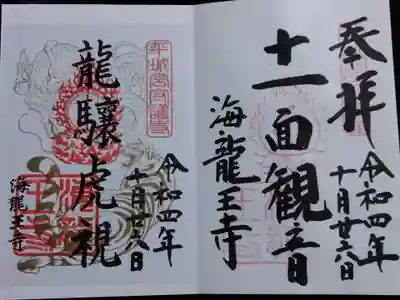 奉拝
令和四年
十月廿六日
十一面観音
海龍王寺
令和四年
十月廿六日
龍驤虎視
海龍王寺